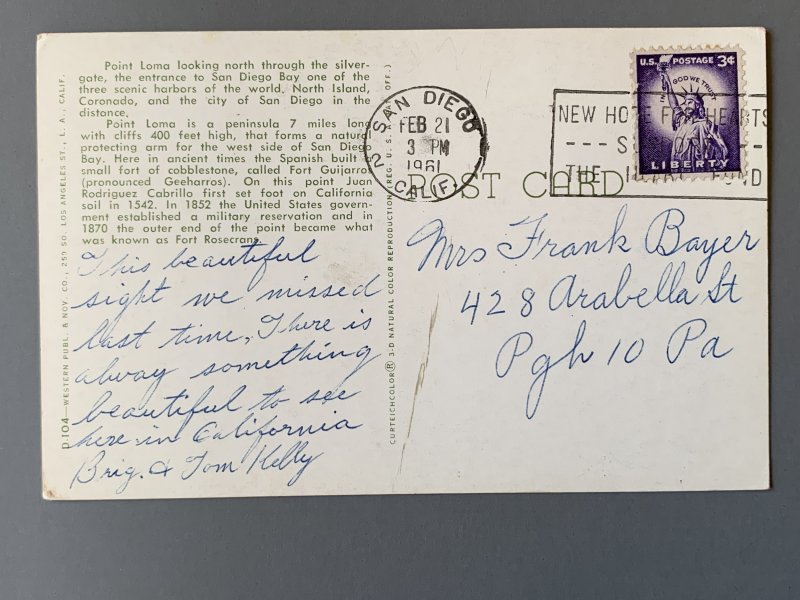 Point Loma looking north through the silver-
gate, the entrance to San Diego Bay one of the
three scenic harbors of the world, North Island,
Coronado, and the city of San Diego in the
distance.
Point Loma is a peninsula 7 miles long
with cliffs 400 feet high, that forms a natural
protecting arm for the west side of San Diego
Bay. Here in ancient times the Spanish built a
small fort of cobblestone, called Fort Guijarros
(pronounced Geeharros). On this point Juan
Rodriguez Cabrillo first set foot on California
soil in 1542. In 1852 the United States govern-
ment established a military reservation and in
1870 the outer end of the point became what
was known as Fort Rosecrans.
This beautiful
sight we missed
last time. There is
alway something
beautiful to see
here in California
Brig. & Tom Kelly
D.104—WESTERN PUBL. & NOV. CO., 259 SO. LOS ANGELES ST., L. A., CALIF.
CURTEICHCOLOR® 3-D NATURAL COLOR REPRODUCTION (REG. U.S.A. PAT. OFF.)
SAN DIEGO
2
FEB 21
3 PM
1961
CALIF.
POST CARD
U.S. POSTAGE 3¢
IN GOD WE TRUST
LIBERTY
NEW HOPE FOR HEARTS
THE HEART FUND
Mrs Frank Bayer
428 Arabella St
Pgh 10 Pa